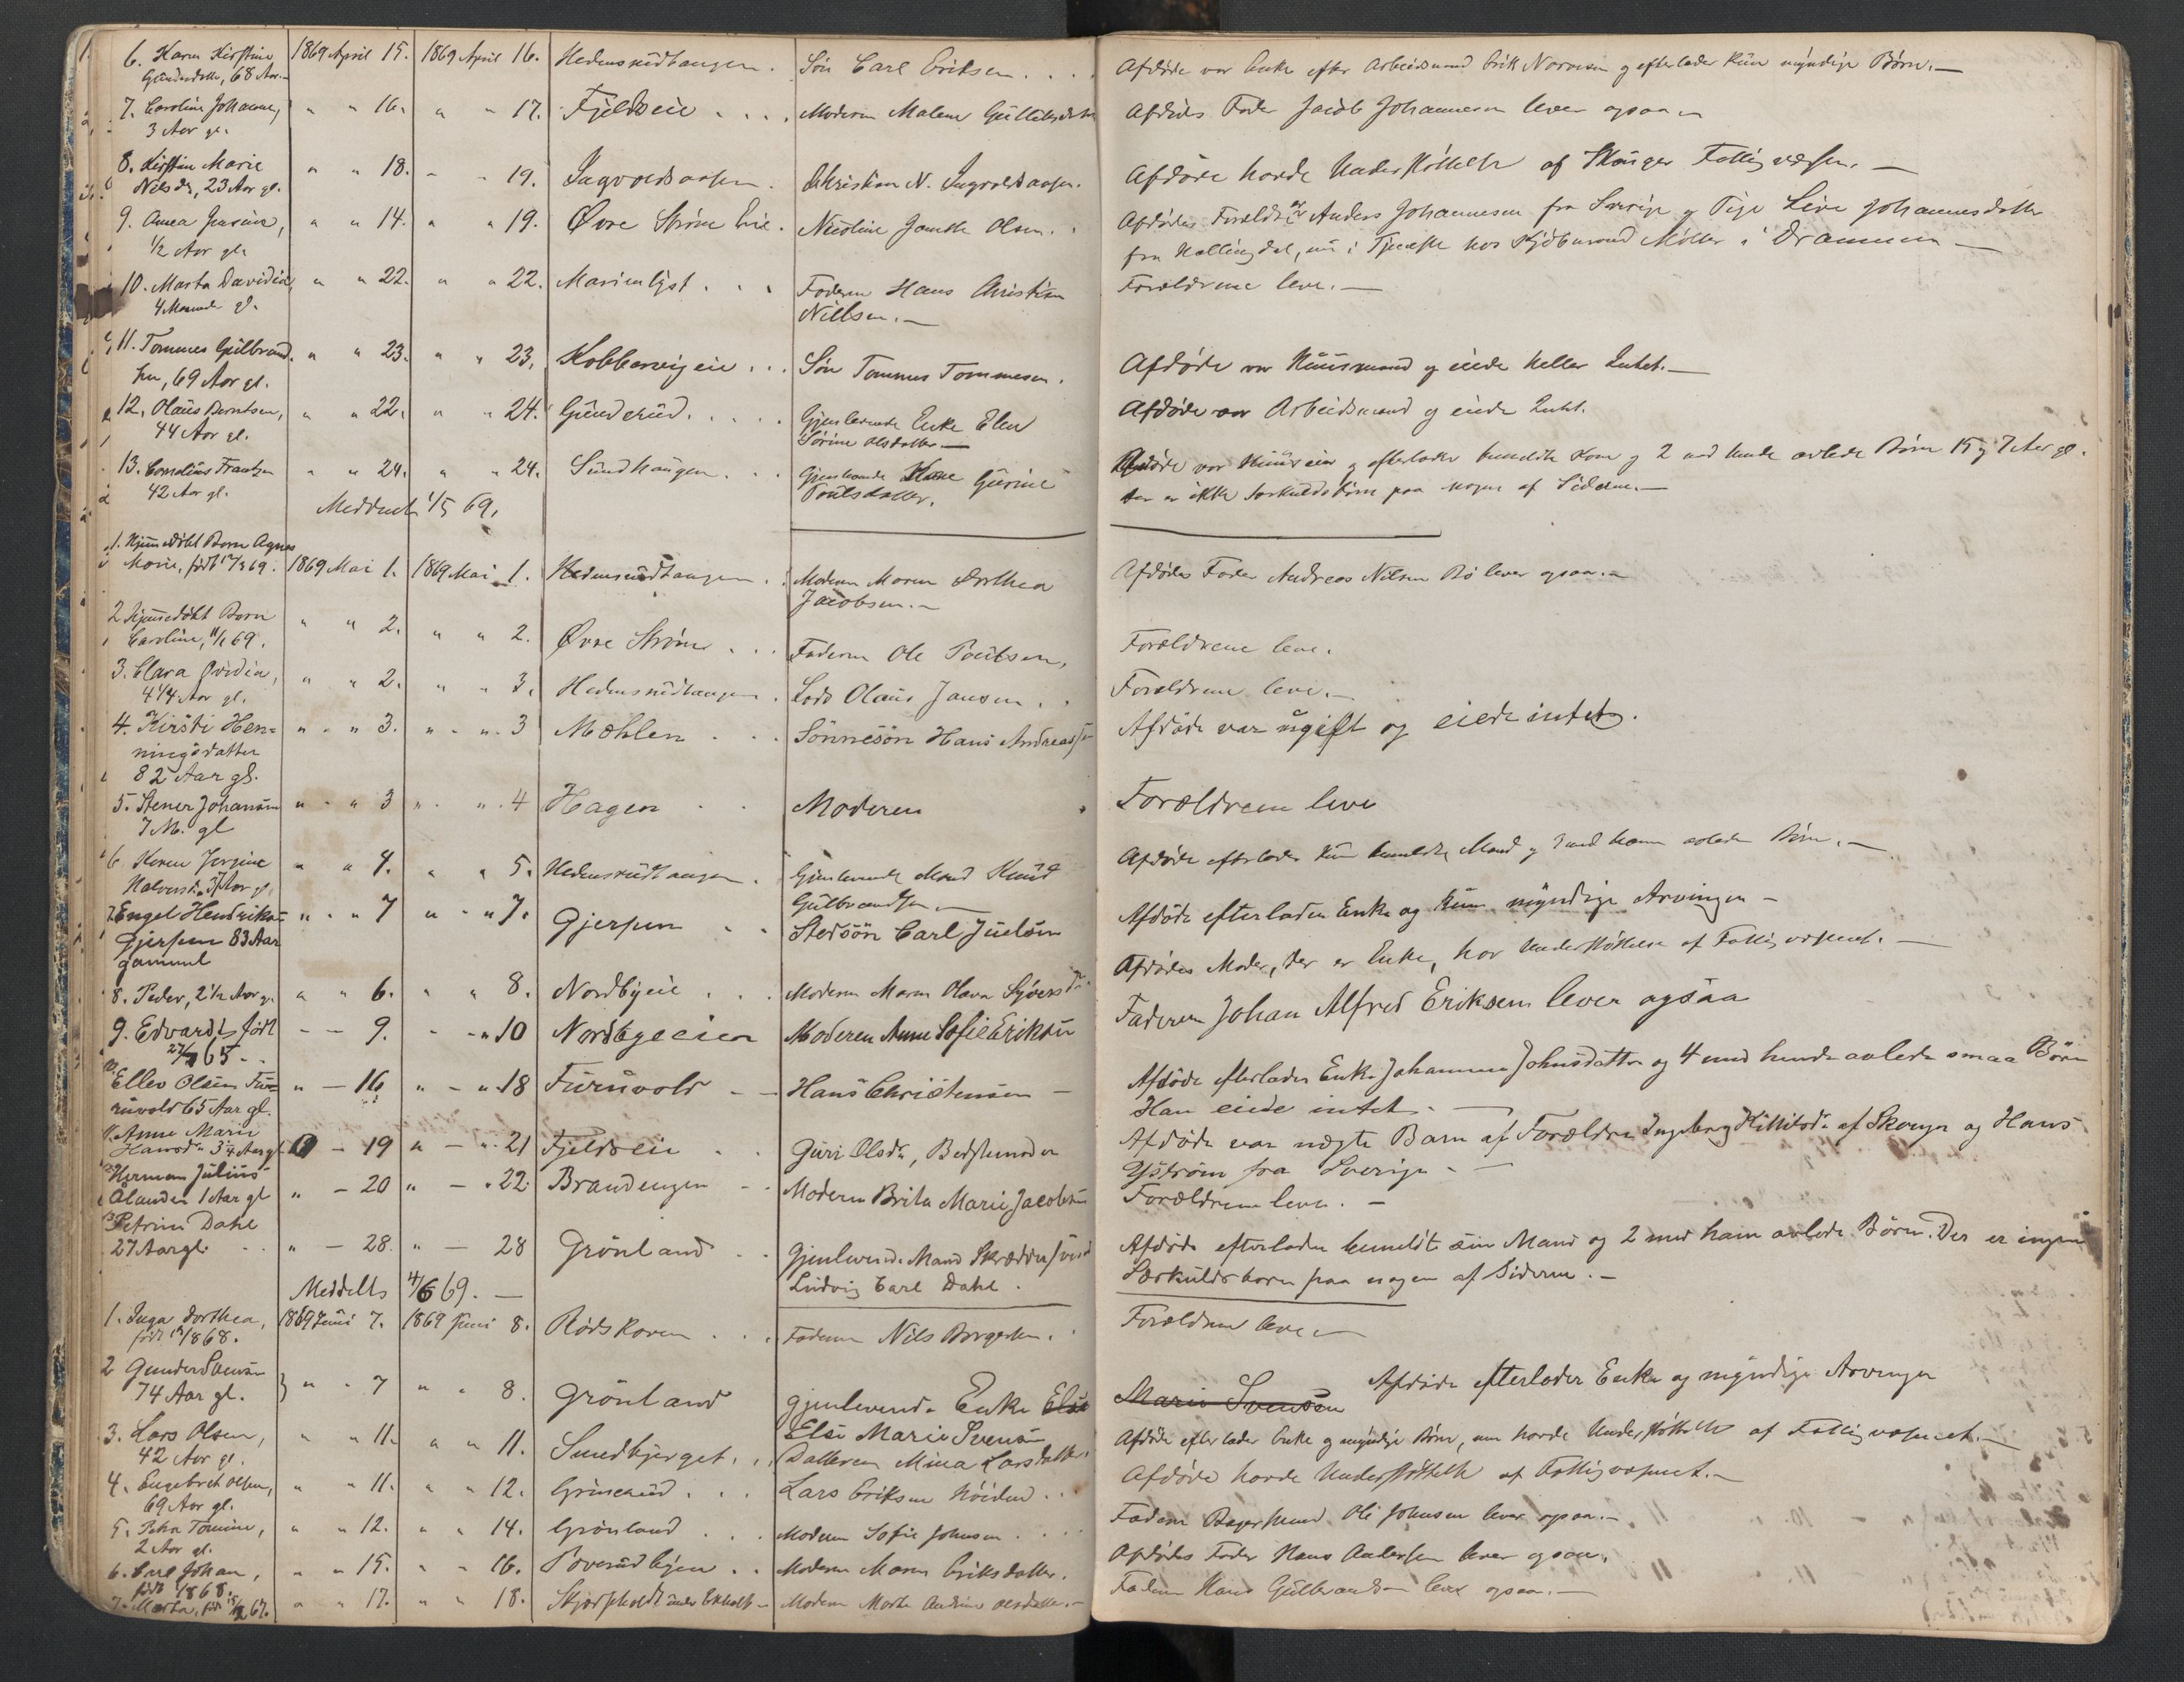 6. Karen Kirstine 1869 April 15. 1869 April 16. Hedensrudtangen. Søn Carl Eriksen.... Afdøde var Enke efter Arbeidsmand Erik og efterlader kun myndige Børn.—
Gundersdatter, 68 Aar.—
7. Caroline Johanne, " " 16. " " 17. Fjeldseie .... Moderen Malene Gulliksdatter Afdødes Fader Jacob Johannesen lever ogsaa.
3 Aar gl.
8. Kirstine Marie " " 18. " " 19. Ingvoldsaasen. Christian N. Ingvoldsaasen. Afdøde havde Understøttelse af Skouger Fattigvæsen.—
Nilsdr, 23 Aar gl.
9. Anna " " 14. " " 19. Øvre Strøm Eie. Nicoline Olsen.. Afdødes Forældre er Anders Johannesen fra Sverige og Pige Live Johannesdatter
½ Aar gl. fra Hallingdal, nu i Tjeneste hos Kjøbmand Møller i Drammen —
10. Marta Davidia " " 22. " " 22. Marienlyst... Faderen Hans Christian Forældrene leve.—
4 Maaneder gl. Nillsen.—
11. Tommes Gulbrand- " " 23. " " 23. Kobbervigeie... Søn Tommes Tommesen. Afdøde var Huusmand og eiede heller Intet.—
sen, 69 Aar gl.
12. Olaus Berntsen, " " 22. " " 24. Gunderud..... Gjenlevende Enke Elen Afdøde var Arbeidsmand og eiede Intet.
44 Aar gl. Sørine Olsdatter—
13. Cornelius Frantzen " " 24. " " 24. Sundhaugen... Gjenlevende Kone Gurine Afdøde var Huuseier og efterlader bemeldte Kone og 2 med hende avlede Børn 15 og 7 Aar gl.
42 Aar gl. Poulsdatter. Der er ikke Særkuldsbørn paa nogen af Siderne.—
Meddeelt 1/5 69.
1. Hjemmedøbt Barn Agnes
Marie, født 69. 1869 Mai 1. 1869 Mai 1. Hedensrudtangen.. Moderen Maren Dorthea Afdødes Fader Andreas Nilsen Bø lever ogsaa.—
Jacobsen.—
2 Hjemmedøbt Barn " " 2. " " 2. Øvre Strøm... Faderen Ole Poulsen, Forældrene leve.
Caroline, 69.
3. Clara Ovidia, " " 2. " " 3. Hedensrudtangen. Lods Olaus Jansen.. Forældrene leve.—
4¼ Aar gl.
4. Kirsti Hen= " " 3. " " 3 Mæhlen... Sønnesøn Hans Andreas Afdøde var ugift og eiede intet.
ningsdatter
82 Aar gl.
5. Stener Johansen " " 3 " " 4 Hagen.. Moderen Forældrene leve
7 M. gl
6. Karen Jørgine " " 4. " " 5. Hedensrudtangen. Gjenlevende Mand Knud Afdøde efterlader kun bemeldte Mand og 3 med ham avlede Børn.—
Halvorsdr 37 Aar gl. Gulbrandsen—
7. Engel Hendriksen " " 7 " " 7. Gjerpen.. Stedsøn Carl Juelsen Afdøde efterlader Enke og kun myndige Arvinger —
Gjerpen 83 Aar
gammel
8. Peder, 2½ Aar gl. " " 6. " " 8. Nordbyeie... Moderen Maren Olava Syversdr. Afdødes Moder, der er Enke, har Understøttelse af Fattigvæsenet.—
9. Edvard, født – – 9. – – " 10 Nordbyeeien Moderen Anne Sofie Eriksen Faderen Johan Alfred Eriksen lever ogsaa
65..
10. Ellev Olsen Fu= " – 16 " – " 18 Furuvold – – Hans Christensen — Afdøde efterlader Enke Johanne Johnsdatter og 4 med hende avlede smaa Børn
ruvold 65 Aar gl. Han eiede intet.—
11. Anne Marie
Hansdr 3¼ Aar gl – 19 " – " 21 Fjeldseie.. Guri Olsdr, Bedstemoder Afdøde var uægte Barn af Forældre Ingeborg Kittilsdr af Skouger og Hans
12. Herman Julius fra Sverige.—
Ålander 1 Aar gl " – 20 " – " 22. Brandengen – Moderen Brita Marie Jacobsen Forældrene leve.—
13. Petrine Dahl
27 Aar gl... " – 28. " – 28 Grønland.. Gjenlevende Mand Skrædder Afdøde efterlader bemeldte sin Mand og 2 med ham avlede Børn. Der er ingen
Ludvig Carl Dahl. Særkuldsbørn paa nogen af Siderne.—
Meddelt 4/6 69.—
1. Inga Dorthea, 1869 Juni 7. 1869 Juni 8. Rødskoven... Faderen Nils Borgersen.. Forældrene leve
født 1868.
2 Gunder Svensen
74 Aar gl. } " " 7 " " 8. Grönland gjenlevende Enke Else Marie Svensen Afdøde efterlader Enke og myndige Arvinger
Else Marie Svensen
3. Lars Olsen, " " 11. " " 11. Smedbjerget... Datteren Mina Larsdatter. Afdøde efterlader Enke og myndige Børn, men havde Understøttelse af Fattigvæsenet.—
42 Aar gl.
4. Engebret Olsen, " " 11. " " 12. ... Lars Eriksen .. Afdøde havde Understøttelse af Fattigvæsenet.—
69 Aar gl.
5. " " 12. " " 14. Grönland... Moderen Sofie Johnsen.... Faderen Bagersvend Ole Johnsen lever ogsaa.—
2 Aar gl.
6. Carl Johan, " " 15. " " 16. .. Moderen Maren Eriksdatter. Afdødes Fader Hans Andersen lever ogsaa.
født 1868.
7. Marta, født 67. " " 17. " " 18. under Moderen Marte Andrine Olsdatter.— Faderen Hans Gulbrandsen lever ogsaa.—